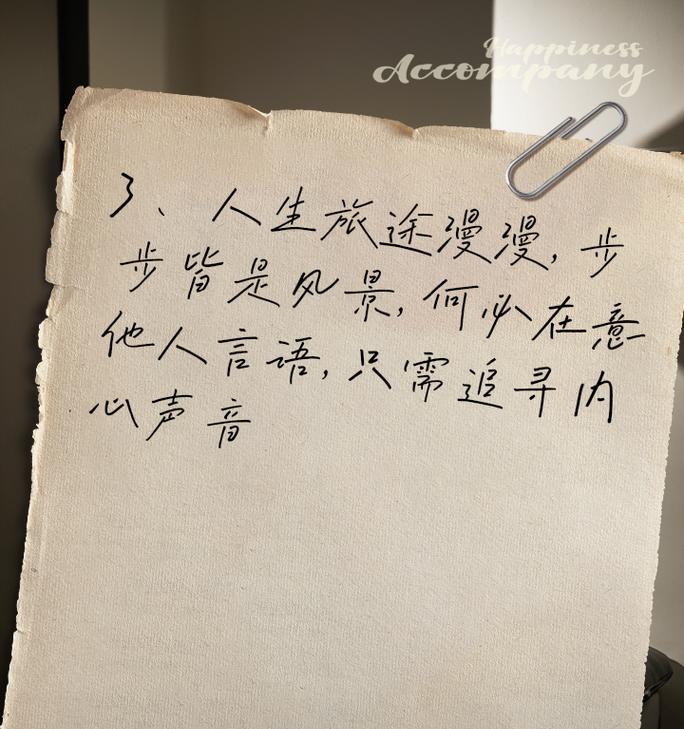 Happiness
Accompany
3、人生旅途漫漫,步
步皆是风景,何必在意
他人言语,只需追寻内
心声音